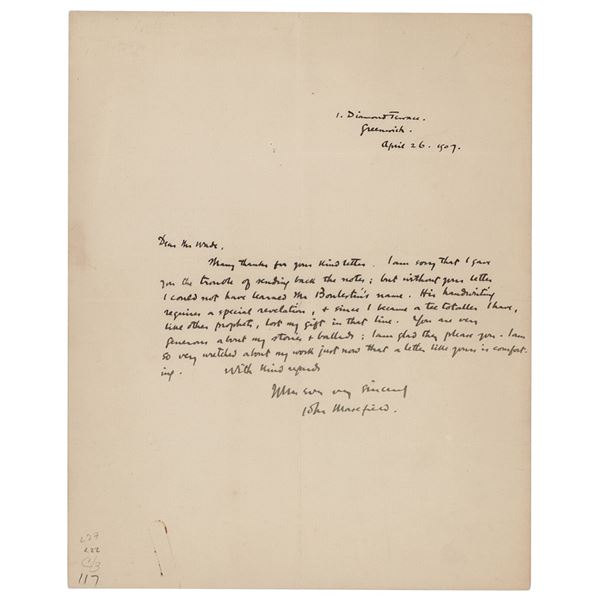 1. Diamond Terrace.
Greenwich.
April 26. 1907.
Dear Mr Wade.
Many thanks for your kind letter. I am sorry that I gave
you the trouble of sending back the notes; but without your letter
I could not have learned Mr Boulestin's name. His handwriting
requires a special revelation, & since I became a tee totaller I have,
like other prophets, lost my gift in that line. You are very
generous about my stories & ballads; I am glad they please you. I am
so very wretched about my work just now that a letter like yours is comfort-
ing. With kind regards
Yours very sincerely
John Masefield.
C/3
117